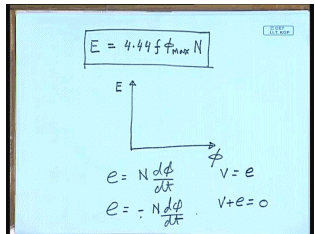 © CET
I.I.T. KGP
E = 4.44 f ϕMAX N
E
ϕ
e = N dϕ/dt V = e
e = - N dϕ/dt . V+e=0